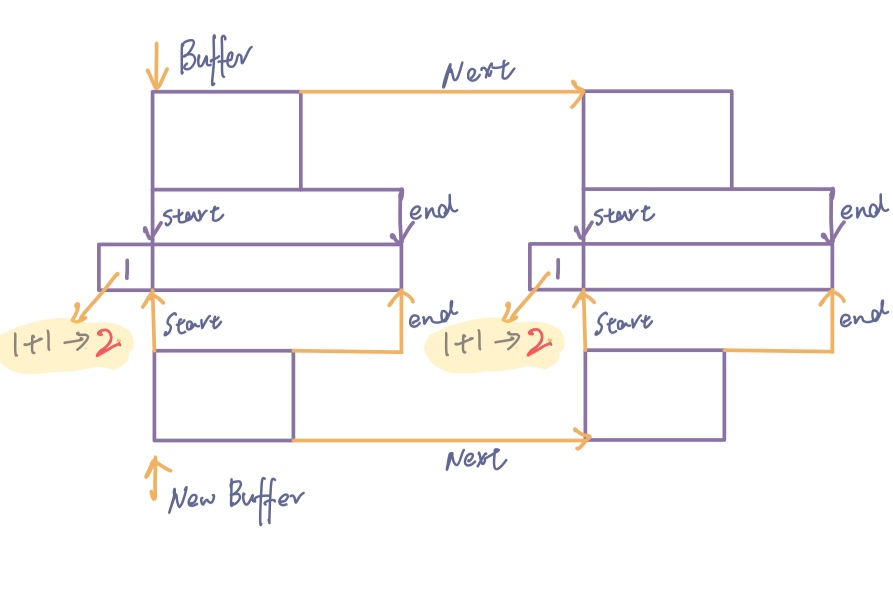 Buffer
Next
start
end
start
end
1
1
Start
end
Start
end
1+1→2
1+1→2
Next
New Buffer